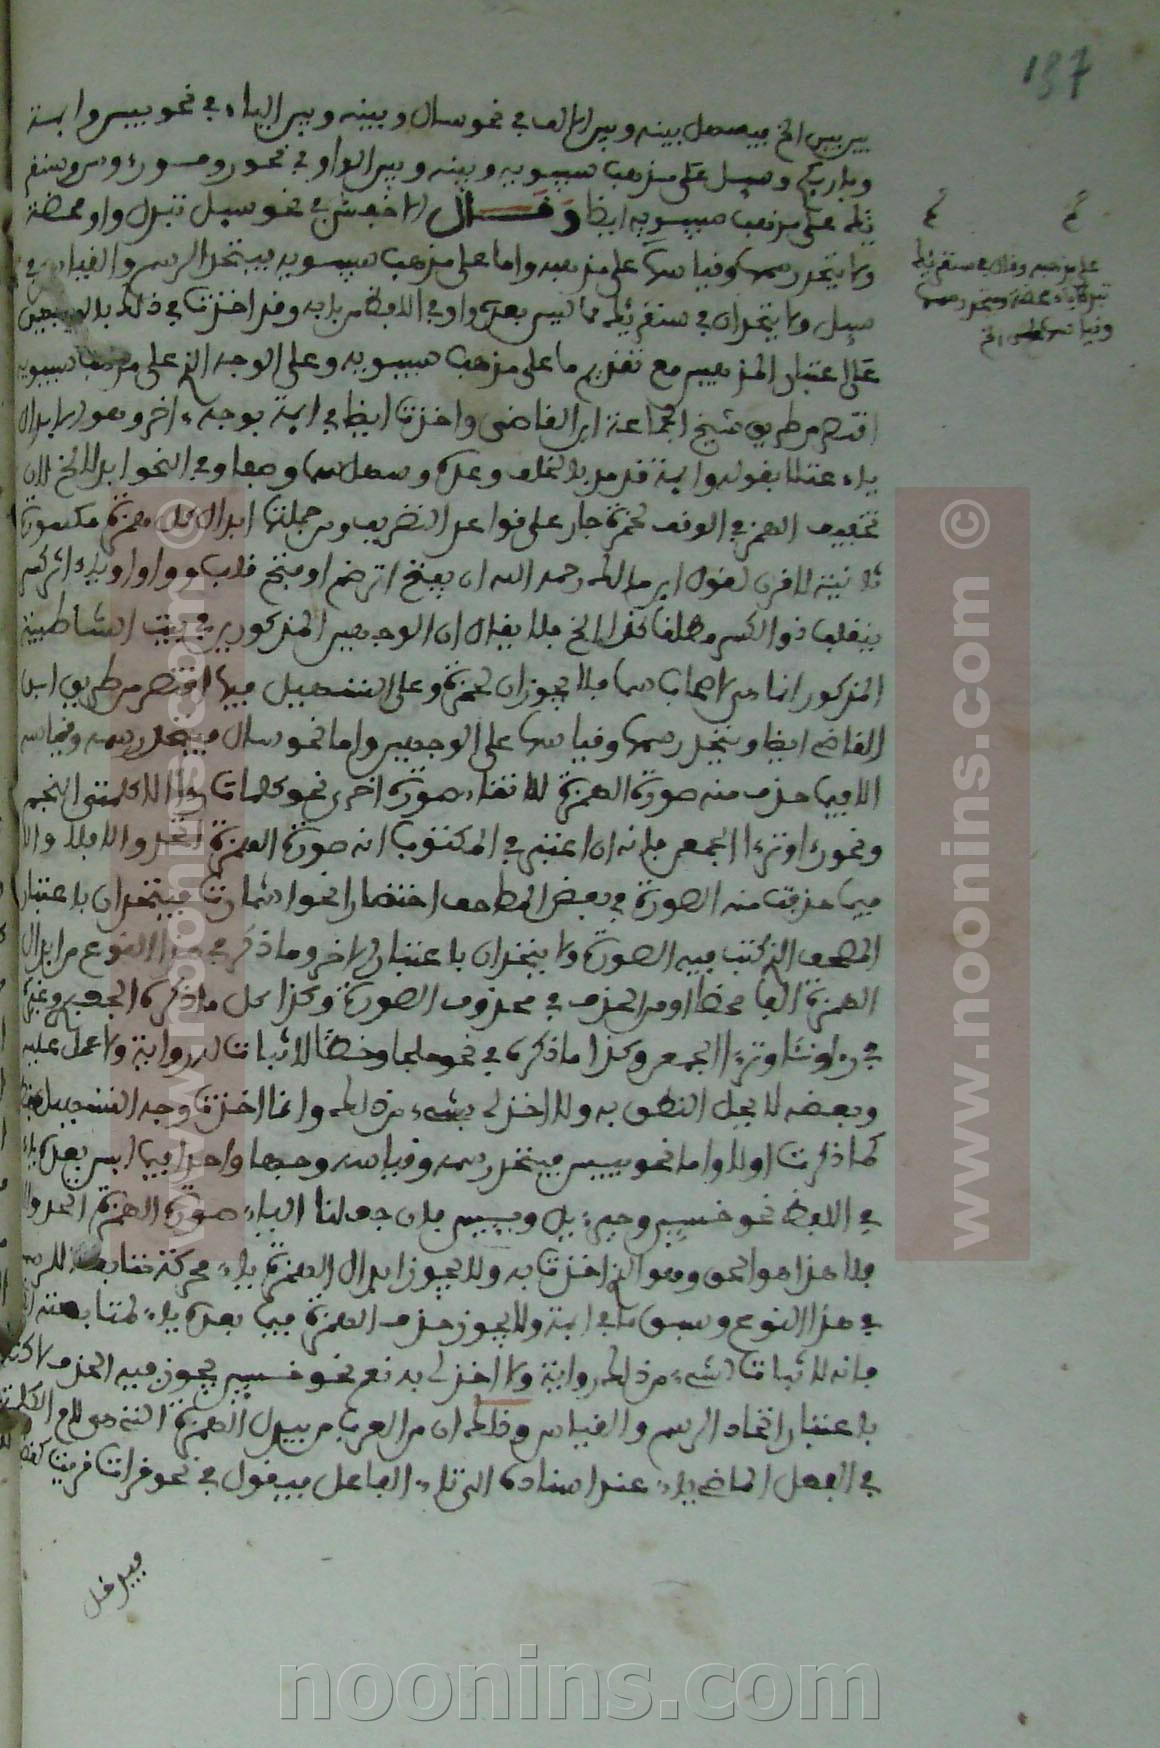 137
بين بين الخ فيسهل بينه وبين الالف في نحو سال وبينه وبين الياء في نحو بييس وايمة
وباريكم وسيل على مذهب سيبويه وبينه وبين الواو في نحو روسـ
على مذهب سيبويه ايضا وقال الاخفش في نحو سيل تبدل واوا محضة
ولا يتحد رسمها وقياسها على مذهبه واما على مذهب سيبويه فيتحد الرسم والقياس في
سيل ولا يتحدان في سنقريك مما ليس بعده واو في اللفظ من بابه وقد اخذنا في ذلك بالوجهين
على اعتبار المذهبين مع تقديم ما على مذهب سيبويه وعلى الوجه الذي على مذهب سيبويه
اقتصر من طريق شيخ الجماعة ابن القاضي واخذنا ايضا في ايمة بوجه اخر وهو الابدال
ياء عملا بقوله وايمة قد مد بالخلف وحده وسهل سما وصفا وفي النحو ابدلا الخ لان
تخفيف الهمز في الوقف لحمزة جار على قواعد التصريف ومن جملتها ابدال كل همزة مكسورة
ثانية لاخرى لقول ابن مالك رحمه الله ان يفتح اثر ضم او فتح قلب واوا وياء اثر كسر
ينقلب ذو الكسر مطلقا كذا الخ فلا يقال ان الوجهين المذكورين في بيت الشاطبية
المذكور انما هي لاصحاب سما فلا يجوزان لحمزة وعلى التسهيل فيها اقتصر من طريق ابن
القاضي ايضا ويتحد رسمها وقياسها على الوجهين واما نحو سال فيتحد رسمه وقياسه
الا فيما حذف منه صورة الهمزة لالتقاء صورة اخرى نحو كلمات را الا كلمتي النجم
ونحو را وترءا الجمعن فانه ان اعتبر في المكتوب انه صورة الهمزة اتحد والا فلا والا
فيما حذفت منه الصورة في بعض المصاحف اختصارا نحو اشمازت فيتحدان باعتبار
المصحف الذي كتب فيه الصورة ولا يتحدان باعتبار الاخر وما ذكر في هذا النوع من ابدال
الهمزة الفا محضا او من الحذف في محذوف الصورة وكذا كل ما ذكره الجعبري وغيره
في را ونئا وترءا الجمعن وكذا ما ذكره في نحو ملجا وخطئا لا ثبات له رواية ولا عمل عليه
وبعضه لا يحل النطق به ولا اخذ لي بشيء من ذلك وانما اخذت وجه التسهيل فقط
كما ذكرت اولا واما نحو بييس فيتحد رسمه وقياسه وجها واحدا فيما ليس بعده ياء
في اللفظ نحو خسيين وجبريل وبييس فان جعلنا الياء صورة الهمزة اتحد والا
فلا هذا هو الحق وهو الذي اخذنا به ولا يجوز ابدال الهمزة ياء محركة متابعة للرسم
في هذا النوع وسبق ما في ايمة ولا يجوز حذف الهمزة فيما بعده ياء لمتابعته
فانه لا ثبات لشيء من ذلك رواية ولا اخذ لي به نعم نحو خسيين يجوز فيه الحذف لاكن
باعتبار اتحاد الرسم والقياس وذلك ان من العرب من يبدل الهمزة التي هي لام الكلمة
في الفعل الماضي ياء عند اسناده الى تاء الفاعل فيقول في نحو قرات قريت كقضـ
فيدخل
على مذهبه وقال في سنقريك
تبدل ياء محضة ويتحد رسمها
وقياسها الخ
www.noonins.com ©
www.noonins.com ©
noonins.com